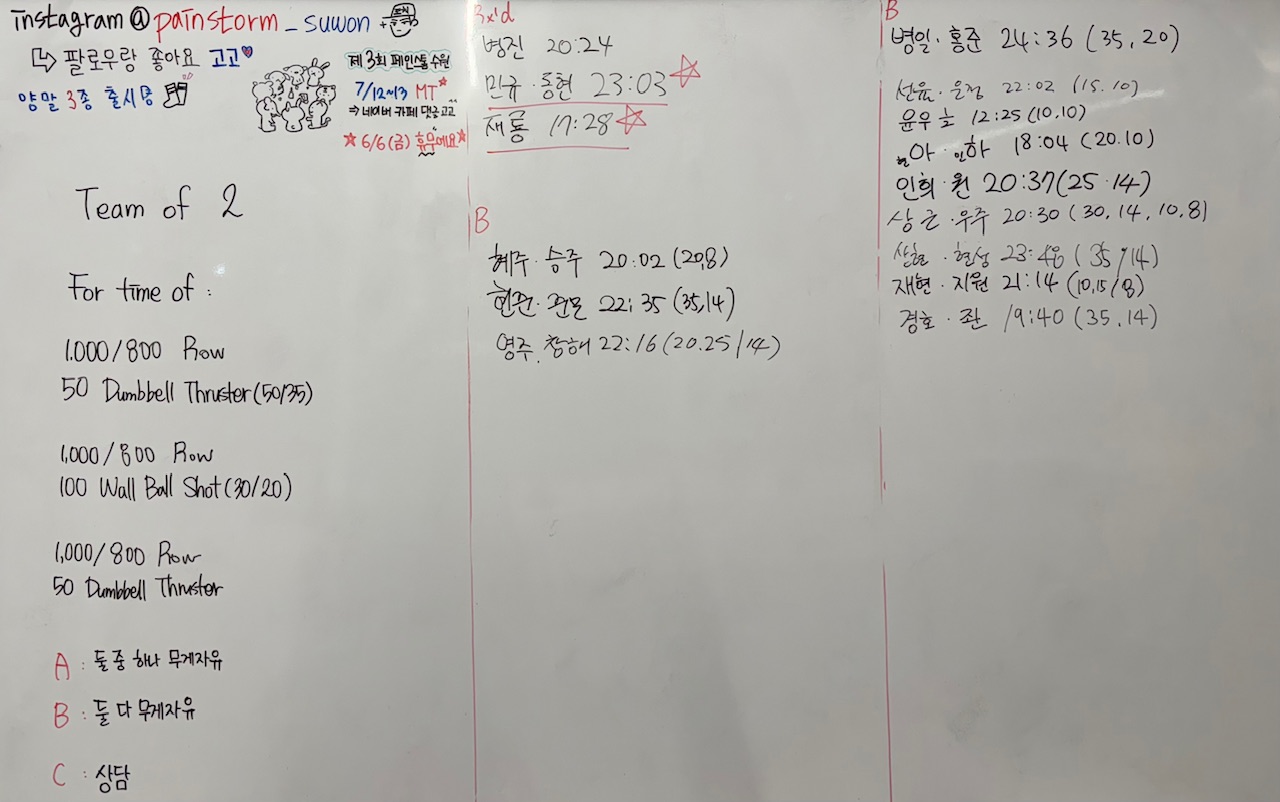 instagram @painstorm_suwon
팔로우랑 좋아요 고고
양말 3종 출시중
제3회 페인스톰 수원
7/12~13 MT
⇒ 네이버 카페 댓글 고고
6/6(금) 휴무에요
Team of 2
For time of :
1.000/800 Row
50 Dumbbell Thruster (50/35)
1,000/800 Row
100 Wall Ball Shot (30/20)
1,000/800 Row
50 Dumbbell Thruster
A : 둘 중 하나 무게자유
B : 둘 다 무게자유
C : 상담
Rx'd
병진 20:24
민규·동현 23:03
재룡 17:28
B
혜주·승주 20:02 (20,8)
현준· 22:35 (35,14)
영주. 창해 22:16 (20.25/14)
B
병일·홍준 24:36 (35,20)
선율·운정 22:02 (15.10)
윤우호 12:25 (10,10)
현아·민하 18:04 (20.10)
인희·원 20:37 (25·14)
상근·우주 20:30 (30,14,10,8)
상현·현성 23:48 (35/14)
재현·지원 21:14 (10,15/8)
경호·좐 19:40 (35.14)